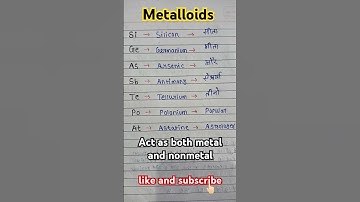 Metalloids
Si → Silicon → सीता
Ge → Germanium → गीता
As → Arsenic → और
Sb → Antimony →
Te → Tellurium →
Po → Polonium →
At → Astatine →
Act as both metal
and nonmetal
like and subscribe